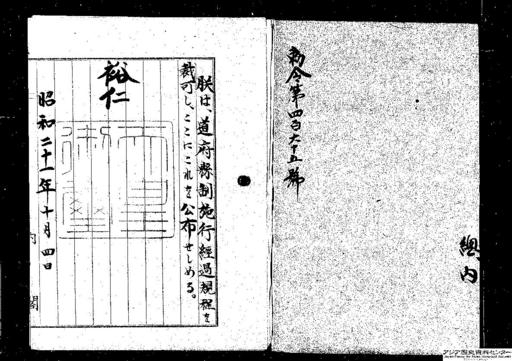 勅令第四百六十五號
總内
朕は、道府縣制施行經過規程を
裁可し、ここにこれを公布せしめる。
裕仁
天皇御璽
昭和二十一年十月四日
内
閣
アジア歴史資料センター